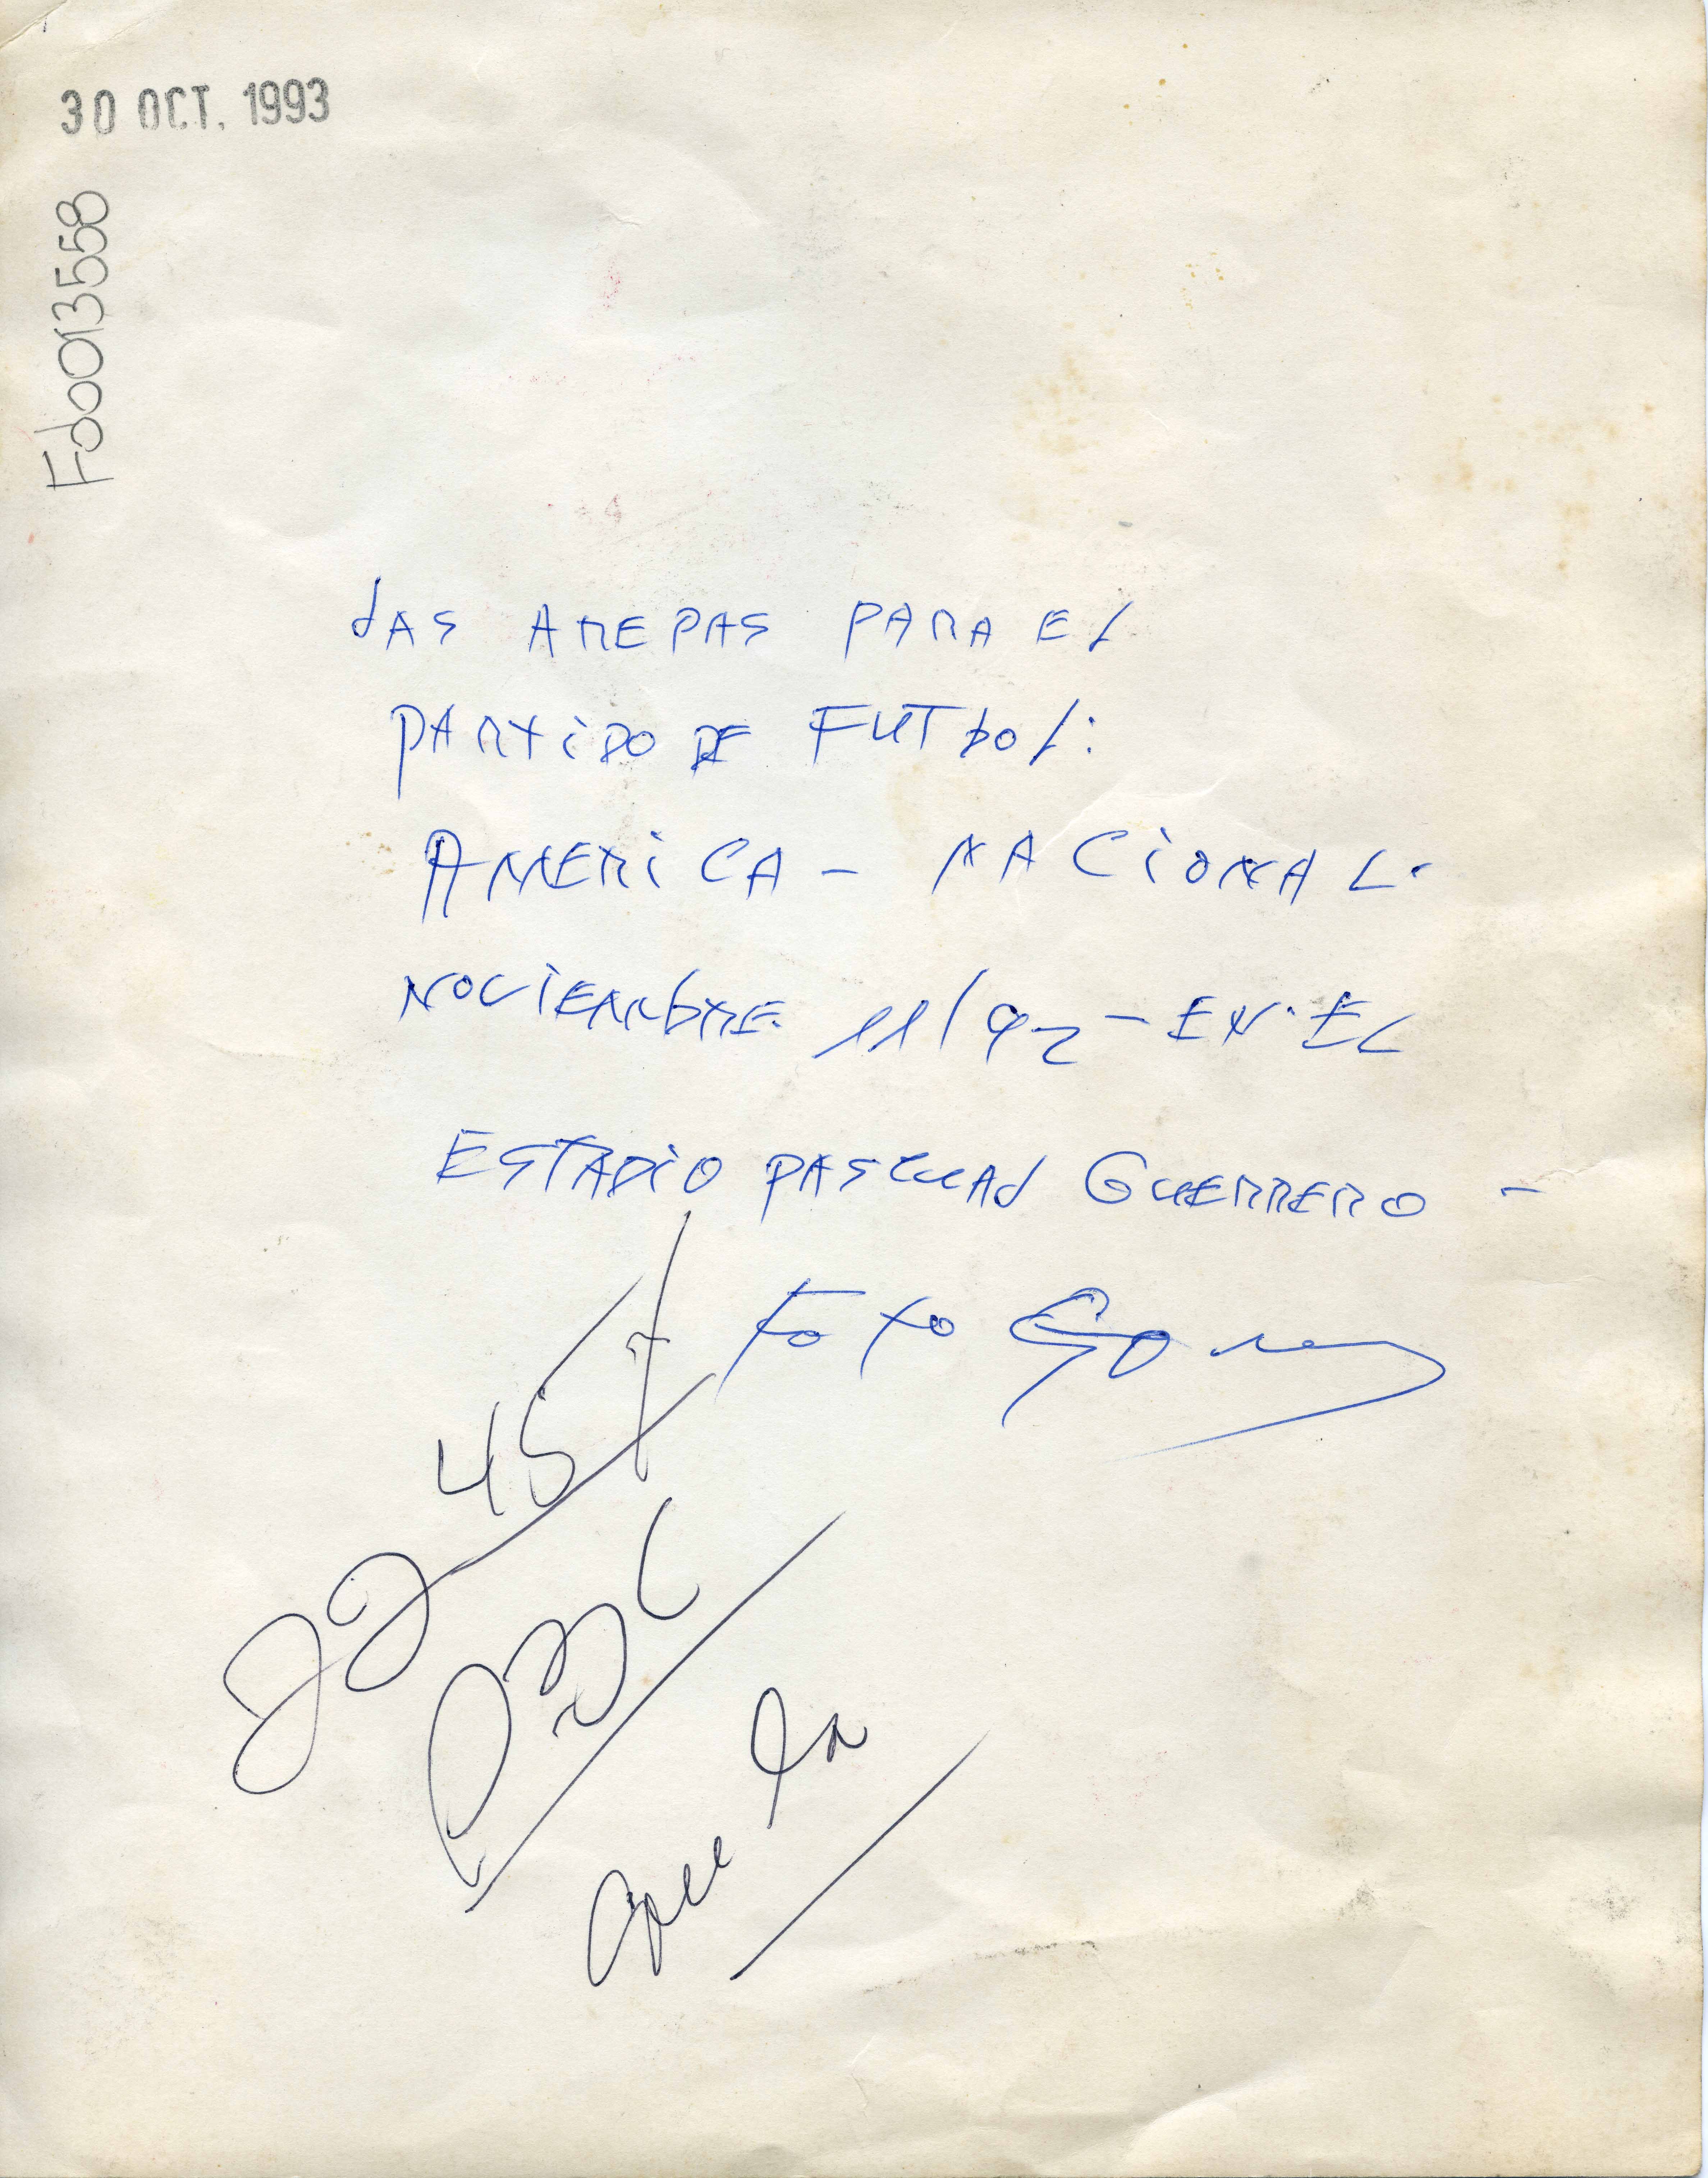 30 OCT. 1993
Fdo013558
LAS AREPAS PARA EL
PARTIDO DE FUTBOL:
AMERICA - NACIONAL.
NOVIEMBRE 11/92 - EN EL
ESTADIO PASCUAL GUERRERO -
FOTO
457